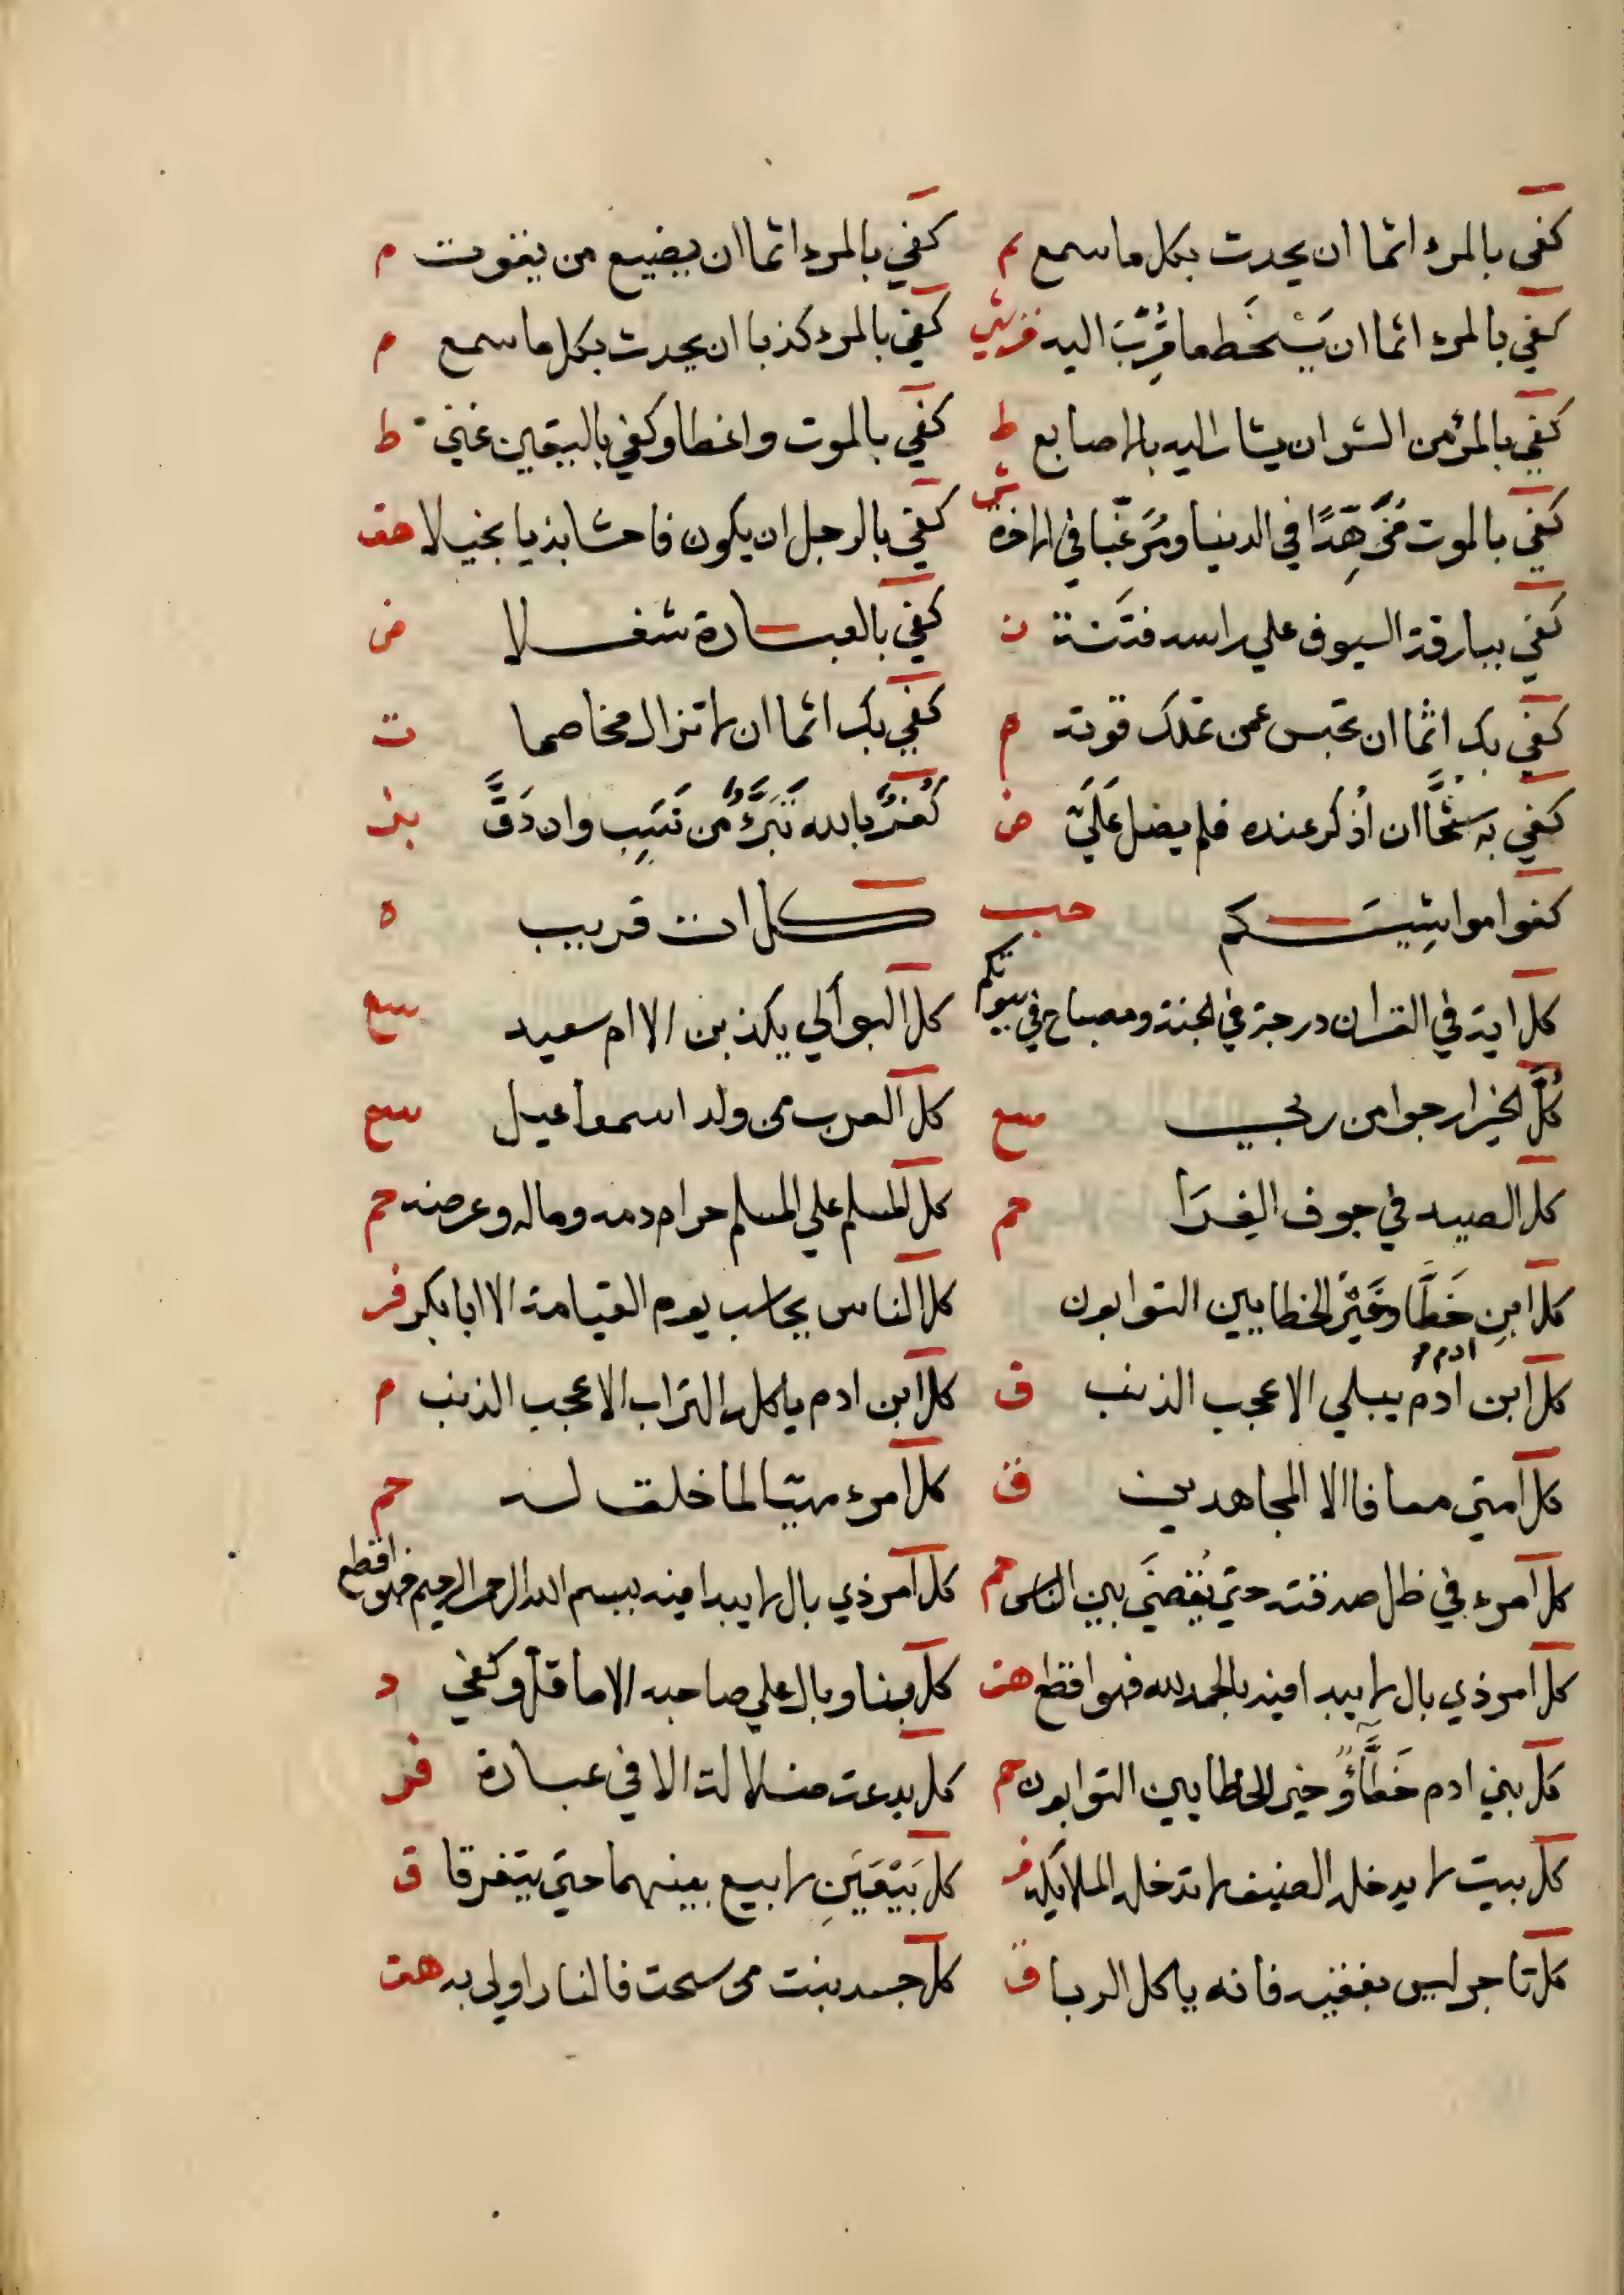 كفي بالمرء اثما ان يحدث بكل ما سمع م كفي بالمرء اثما ان يضيع من يقوت م
كفي بالمرء اثما ان يَسْخَط ما قُرِّبَ اليه كفي بالمرء كذبا ان يحدث بكل ما سمع م
كفي بالمرء من الشر ان يشار اليه بالاصابع ط كفي بالموت واعظا وكفي باليقين غني ط
كفي بالموت مُزَهِّدًا في الدنيا ومُرَغِّبا في الاخرة ش كفي بالرجل ان يكون فاحشا بذيا بخيلا هق
كفي ببارقة السيوف علي راسه فتنة ن كفي بالعبادة شغلا ض
كفي بك اثما ان تحبس عمن تملك قوته م كفي بك اثما ان لا تزال مخاصما ت
كفي به شُحًّا ان اُذْكَر عنده فلم يصل عَلَيَّ ص كُفْرٌ بالله تَبَرُّؤٌ من نَسَبٍ وان دَقَّ بز
كفوا مواشِيَكم حب كل ات قريب ه
كل اية في القران درجة في الجنة ومصباح في بيوتكم كل البواكي يكذبن الا ام سعيد سع
كُلَّ الخير ارجوا من ربي سع كل العرب من ولد اسمعاعيل سع
كل الصيد في جوف الفَرَا حم كل المسلم علي المسلم حرام دمه وماله وعرضه حم
كل ابنِ ادم خَطَّا وخَيْرُ الخطايين التوابون كل الناس يحاسب يوم القيامة الا ابا بكر فر
كل ابن ادم يبلي الا عجب الذنب ق كل ابن ادم ياكله التراب الا عجب الذنب م
كل امتي معافا الا المجاهدين ق كل امرء مهيا لما خلق له حم
كل امرء في ظل صدقته حتي يُقضَي بين الناس حم كل امر ذي بال لا يبدا فيه ببسم الله الرحمن الرحيم فهو اقطع
كل امر ذي بال لا يبدا فيه بالحمد لله فهو اقطع هق كل بنا وبال علي صاحبه الا ما قل وكفي د
كل بني ادم خَطَّاؤٌ وخير الخطايين التوابون حم كل بدعة ضلالة الا في عبادة فر
كل بيت لا يدخله الضيف لا تدخله الملايكه فر كل بَيِّعَيَنِ لا بيع بينهما حتي يتفرقا ق
كل تاجر ليس بفقيه فانه ياكل الربا ق كل جسد ينبت من سحت فالنار اولي به هق